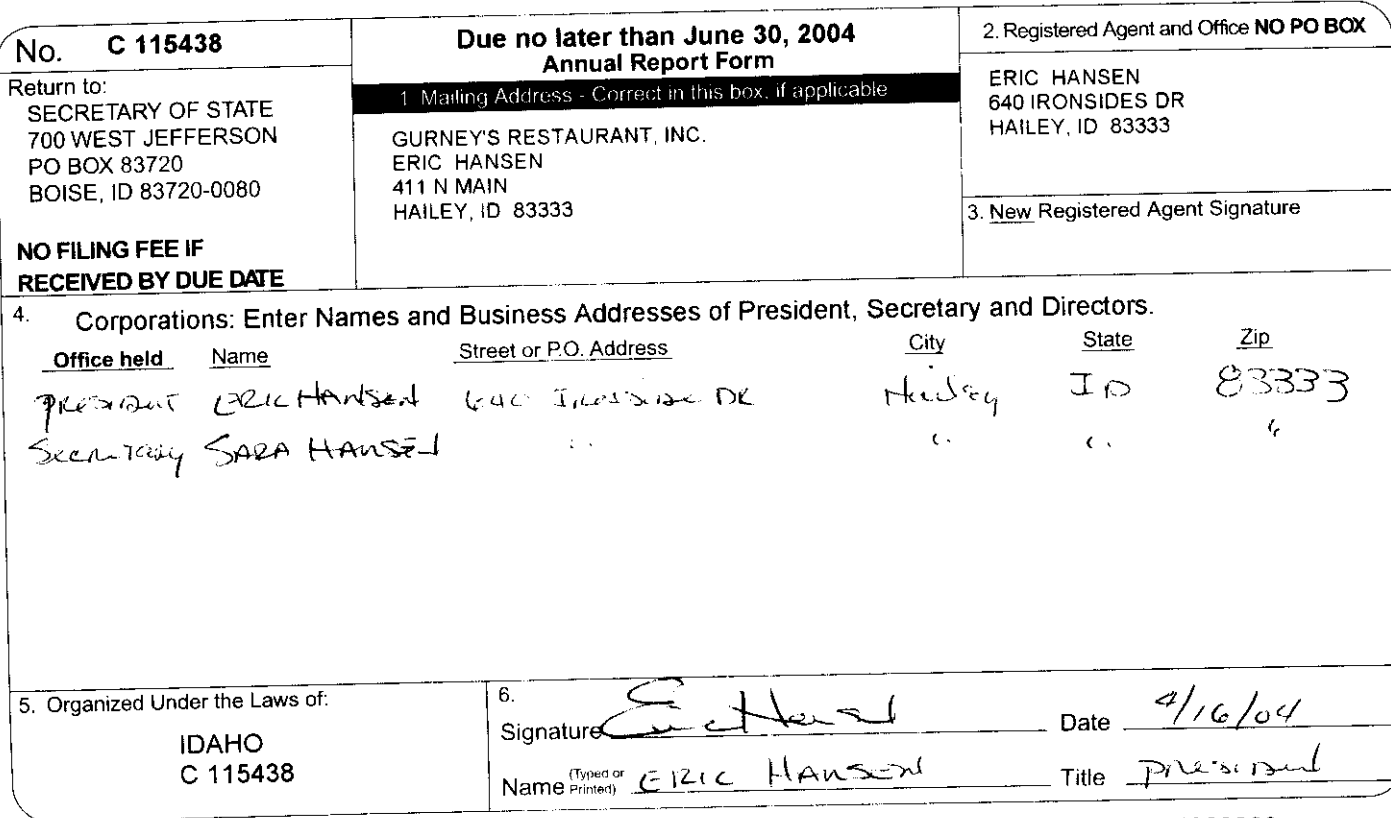 No. C 115438
Return to:
SECRETARY OF STATE
700 WEST JEFFERSON
PO BOX 83720
BOISE, ID 83720-0080
NO FILING FEE IF
RECEIVED BY DUE DATE
Due no later than June 30, 2004
Annual Report Form
1 Mailing Address - Correct in this box, if applicable
GURNEY'S RESTAURANT, INC.
ERIC HANSEN
411 N MAIN
HAILEY, ID 83333
2. Registered Agent and Office NO PO BOX
ERIC HANSEN
640 IRONSIDES DR
HAILEY, ID 83333
3. New Registered Agent Signature
4. Corporations: Enter Names and Business Addresses of President, Secretary and Directors.
Office held Name Street or P.O. Address City State Zip
PRESIDENT ERIC HANSEN 640 IRONSIDE DR Hailey ID 83333
Secretary SARA HANSEN " " " "
5. Organized Under the Laws of:
IDAHO
C 115438
6.
Signature Eric Hansen Date 4/16/04
Name (Typed or Printed) ERIC HANSEN Title President